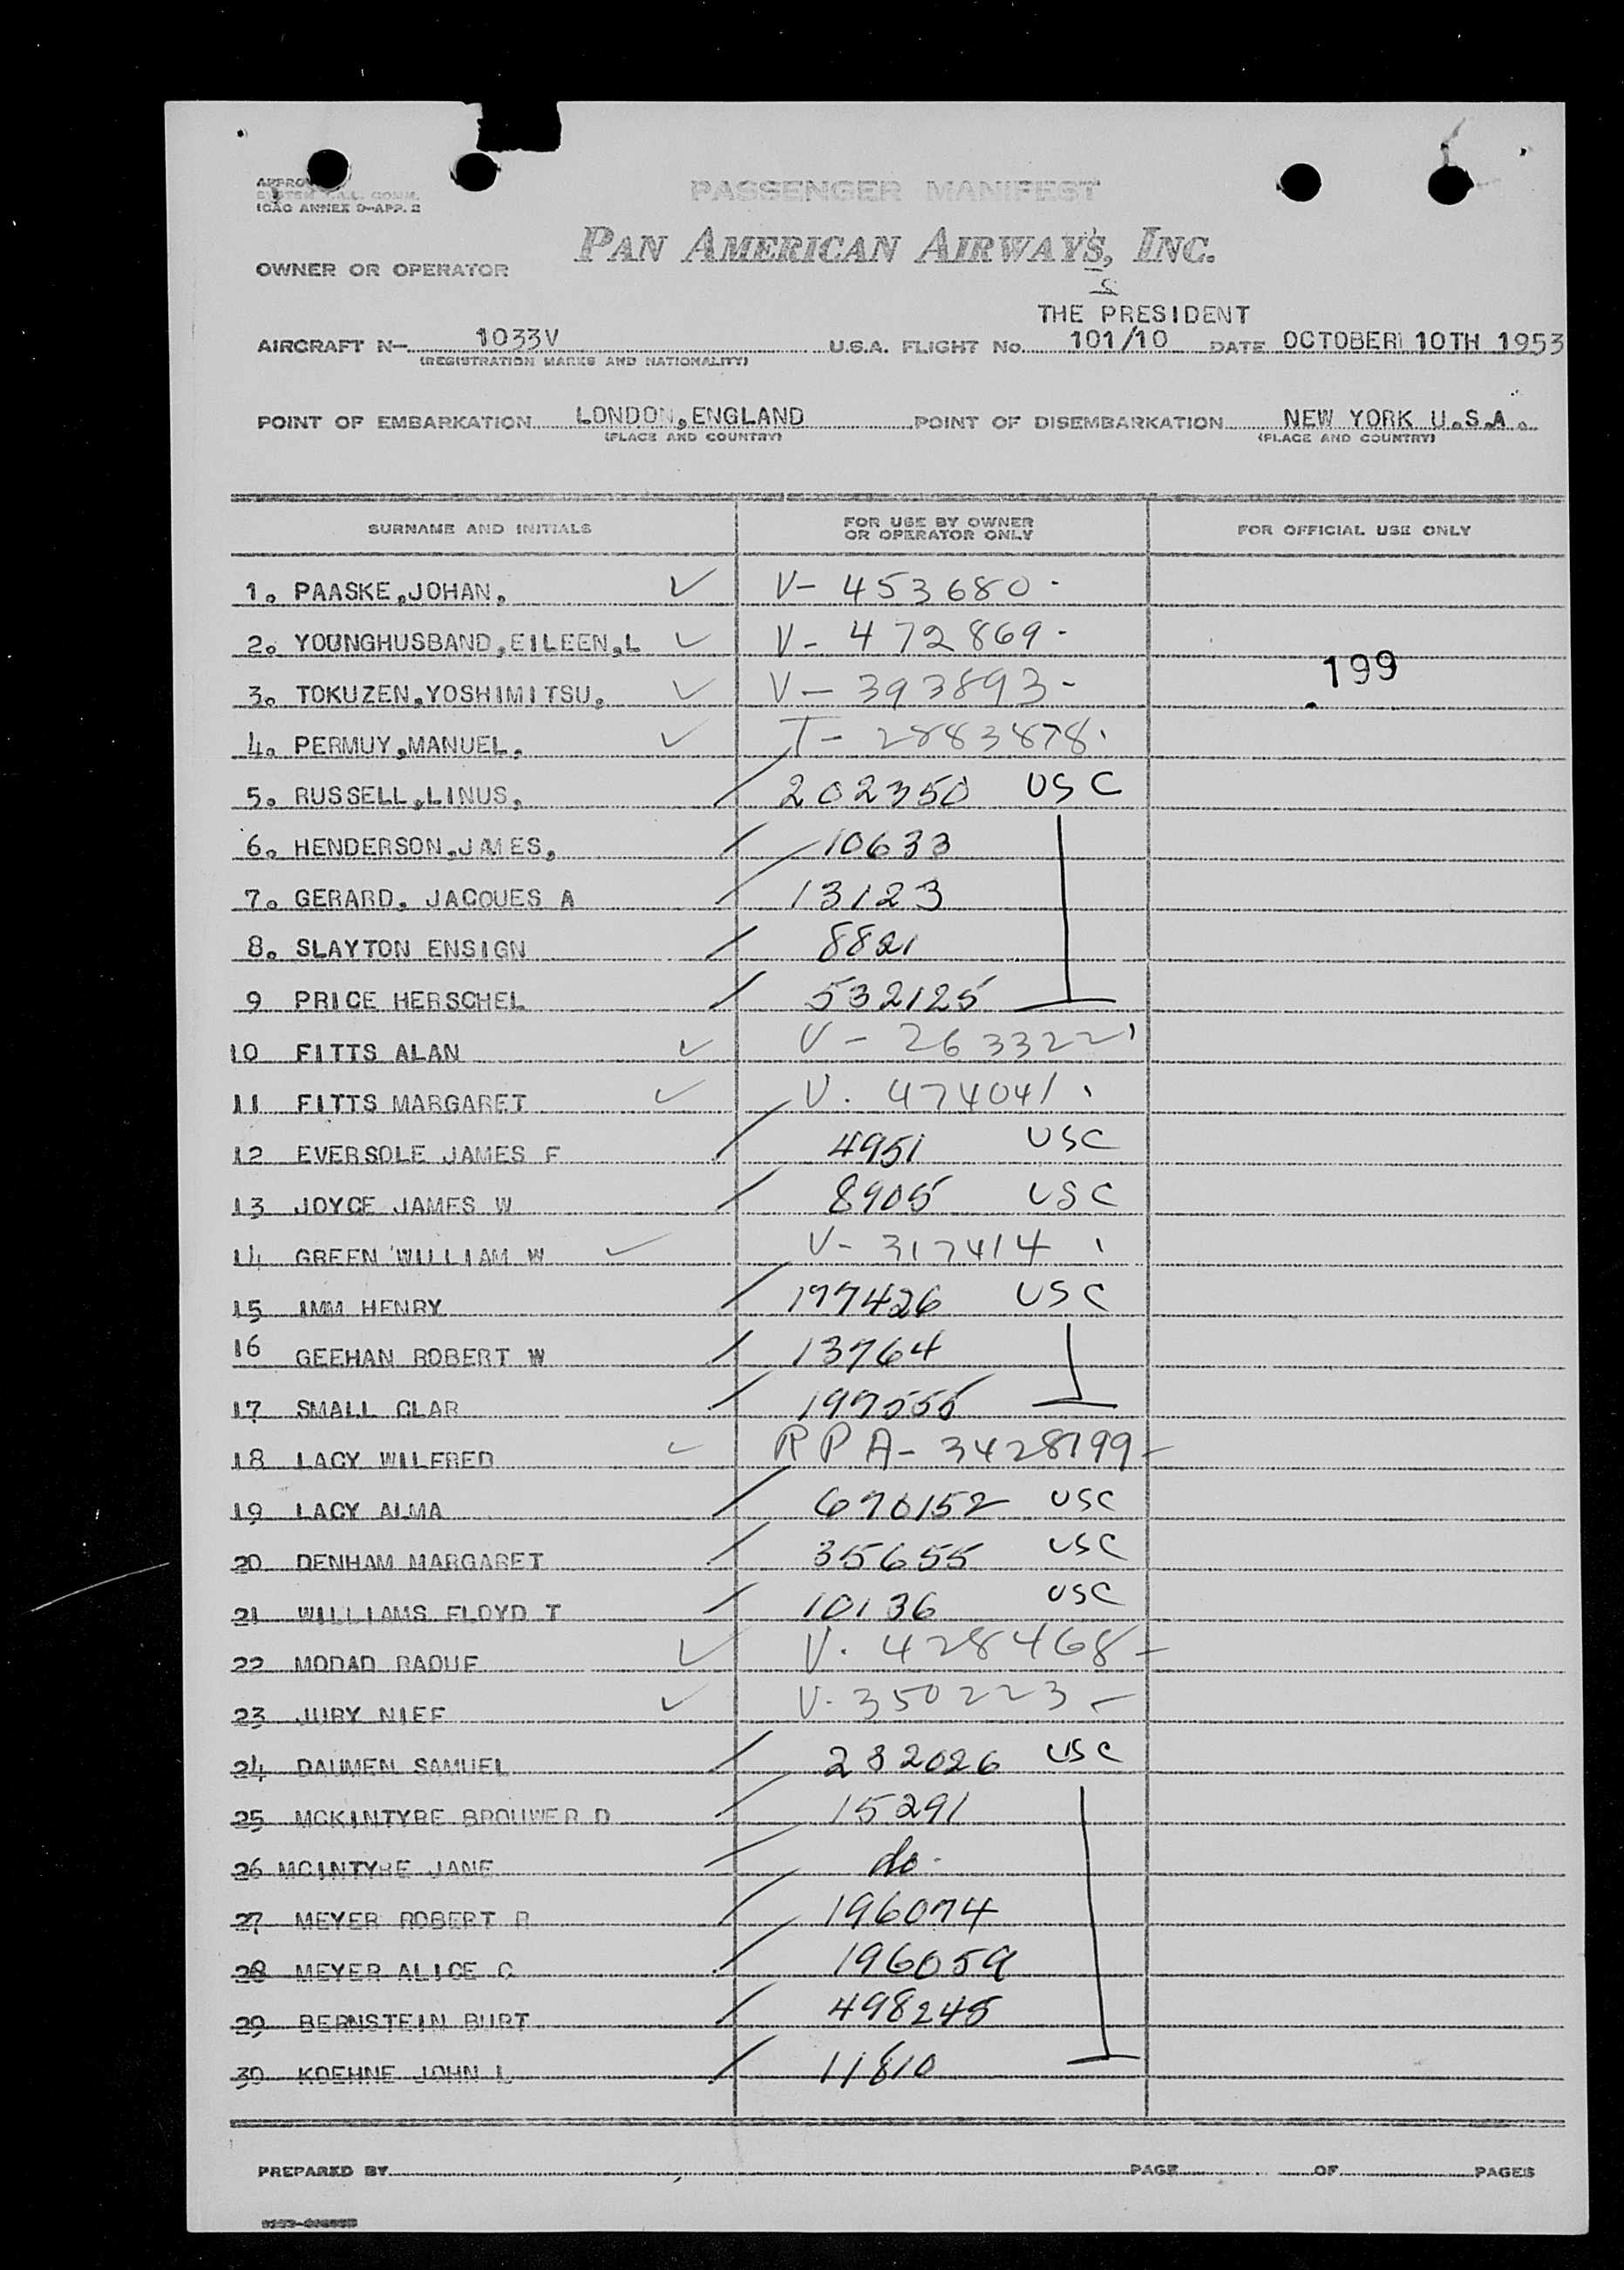 PASSENGER MANIFEST
ICAO ANNEX 9-APP. 2
PAN AMERICAN AIRWAYS, INC.
OWNER OR OPERATOR
THE PRESIDENT
AIRCRAFT N- 1033V U.S.A. FLIGHT No. 101/10 DATE OCTOBER 10TH 1953
(REGISTRATION MARKS AND NATIONALITY)
POINT OF EMBARKATION LONDON,ENGLAND POINT OF DISEMBARKATION NEW YORK U.S.A.
(PLACE AND COUNTRY) (PLACE AND COUNTRY)
SURNAME AND INITIALS FOR USE BY OWNER OR OPERATOR ONLY FOR OFFICIAL USE ONLY
1. PAASKE,JOHAN, ✓ V- 453680
2. YOUNGHUSBAND,EILEEN,L ✓ V- 472869-
199
3. TOKUZEN,YOSHIMITSU, ✓ V- 393893-
4. PERMUY,MANUEL, ✓ T- 2883878
5. RUSSELL,LINUS, / 202350 USC
6. HENDERSON,JAMES, / 10633
7. GERARD, JACQUES A / 13123
8. SLAYTON ENSIGN / 8821
9 PRICE HERSCHEL / 532125
10 FITTS ALAN ✓ V- 263322
11 FITTS MARGARET ✓ V. 474041
12 EVERSOLE JAMES F / 4951 USC
13 JOYCE JAMES W / 8905 USC
14 GREEN WILLIAM W ✓ V- 317414
15 IMM HENRY / 197426 USC
16 GEEHAN ROBERT W / 13764
17 SMALL CLAR / 197555
18 LACY WILFRED ✓ RPA- 3428799-
19 LACY ALMA / 670152 USC
20 DENHAM MARGARET / 35655 USC
21 WILLIAMS FLOYD T / 10136 USC
22 MODAD RAOUF ✓ V. 428468-
23 JURY NIEF ✓ V- 350223-
24 DAUMEN SAMUEL / 232026 USC
25 MCKINTYRE BROUWER D / 15291
26 MCINTYRE JANE / do-
27 MEYER ROBERT R / 196074
28 MEYER ALICE C / 196059
29 BERNSTEIN BURT / 498245
30 KOEHNE JOHN L / 11810
PREPARED BY PAGE OF PAGES